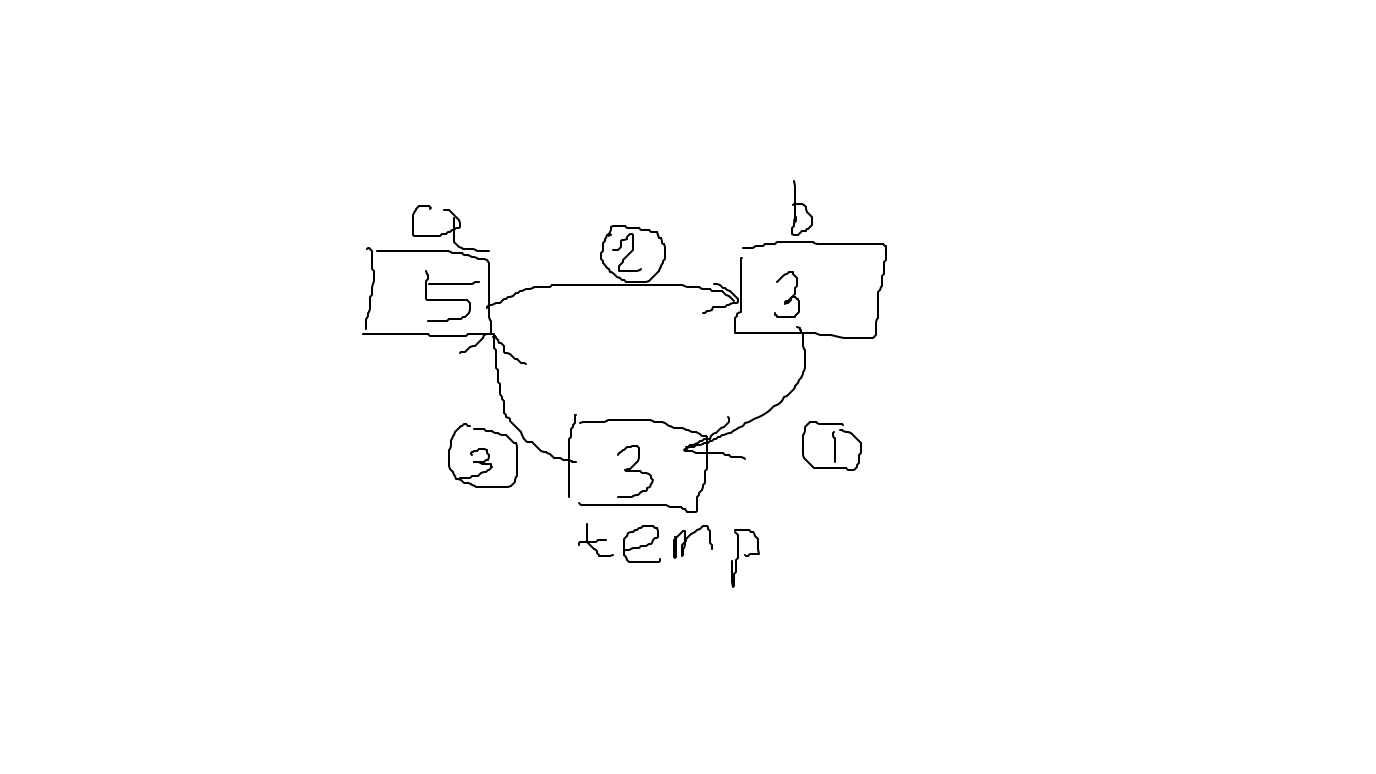 a b
2
5 3
3 3 1
temp